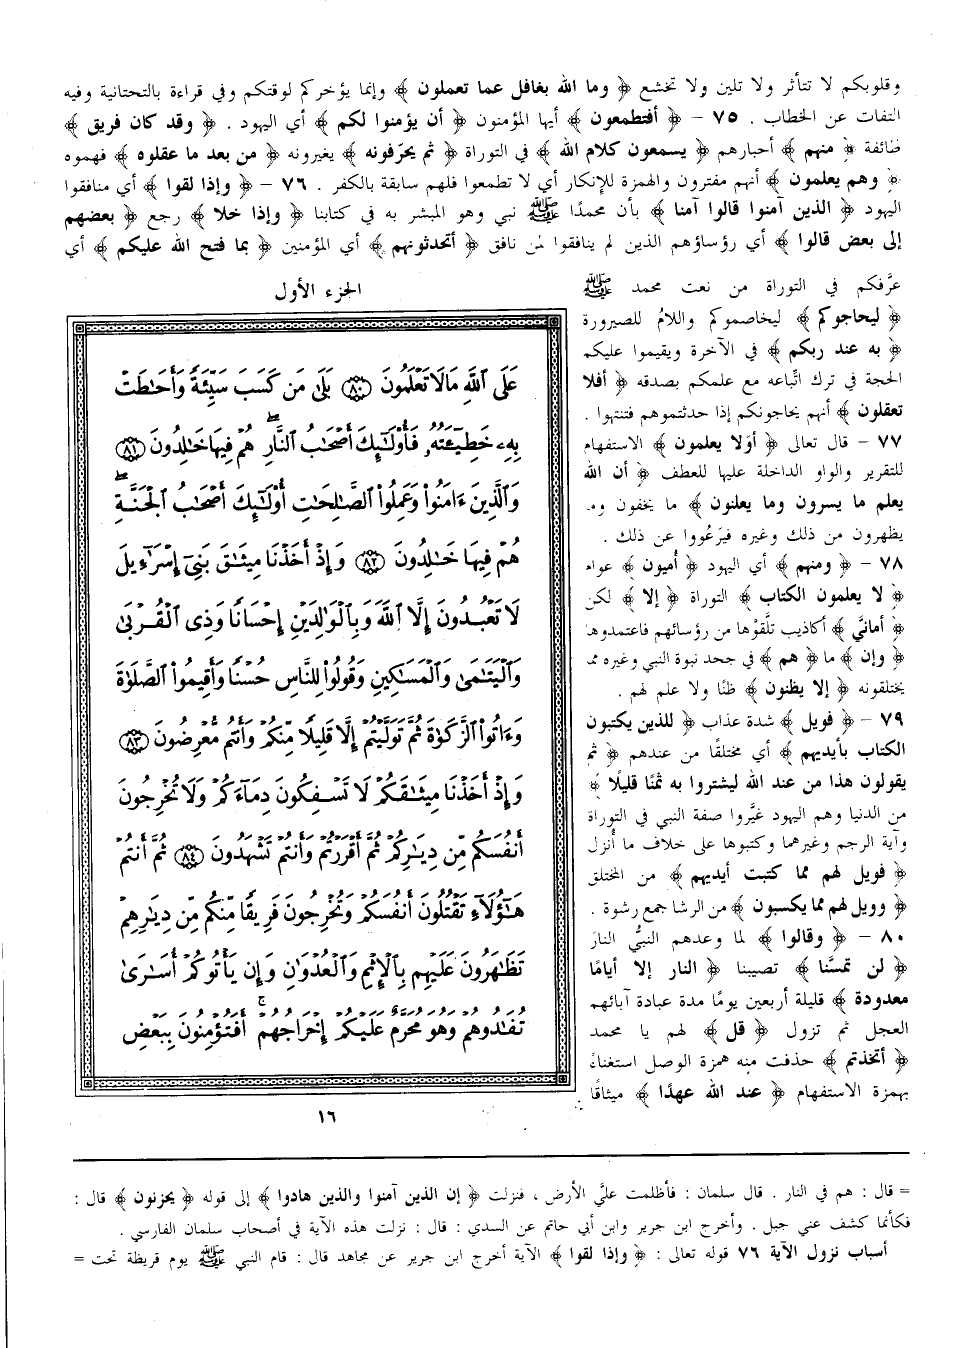 وقلوبكم لا تتأثر ولا تلين ولا تخشع ﴿ وما الله بغافل عما تعملون ﴾ وإنما يؤخركم لوقتكم وفي قراءة بالتحتانية وفيه
التفات عن الخطاب . ٧٥ – ﴿ أفتطمعون ﴾ أيها المؤمنون ﴿ أن يؤمنوا لكم ﴾ أي اليهود . ﴿ وقد كان فريق ﴾
طائفة ﴿ منهم ﴾ أحبارهم ﴿ يسمعون كلام الله ﴾ في التوراة ﴿ ثم يحرّفونه ﴾ يغيرونه ﴿ من بعد ما عقلوه ﴾ فهموه
﴿ وهم يعلمون ﴾ أنهم مفترون والهمزة للإنكار أي لا تطمعوا فلهم سابقة بالكفر . ٧٦ – ﴿ وإذا لقوا ﴾ أي منافقوا
اليهود ﴿ الذين آمنوا قالوا آمنا ﴾ بأن محمدًا ﷺ نبي وهو المبشر به في كتابنا ﴿ وإذا خلا ﴾ رجع ﴿ بعضهم
إلى بعض قالوا ﴾ أي رؤساؤهم الذين لم ينافقوا لمن نافق ﴿ أتحدثونهم ﴾ أي المؤمنين ﴿ بما فتح الله عليكم ﴾ أي
عرَّفكم في التوراة من نعت محمد ﷺ
﴿ ليحاجوكم ﴾ ليخاصموكم واللامُ للصيرورة
﴿ به عند ربكم ﴾ في الآخرة ويقيموا عليكم
الحجة في ترك اتِّباعه مع علمكم بصدقه ﴿ أفلا
تعقلون ﴾ أنهم يحاجونكم إذا حدثتموهم فتنتهوا .
٧٧ – قال تعالى ﴿ أَوَلا يعلمون ﴾ الاستفهام
للتقرير والواو الداخلة عليها للعطف ﴿ أن الله
يعلم ما يسرون وما يعلنون ﴾ ما يخفون وما
يظهرون من ذلك وغيره فيَرعُووا عن ذلك .
٧٨ – ﴿ ومنهم ﴾ أي اليهود ﴿ أُميون ﴾ عوام
﴿ لا يعلمون الكتاب ﴾ التوراة ﴿ إلا ﴾ لكن
﴿ أمانيَّ ﴾ أكاذيب تلقَّوْها من رؤسائهم فاعتمدوها
﴿ وإن ﴾ ما ﴿ هم ﴾ في جحد نبوة النبي وغيره مما
يختلقونه ﴿ إلا يظنون ﴾ ظنًا ولا علم لهم .
٧٩ – ﴿ فويل ﴾ شدة عذاب ﴿ للذين يكتبون
الكتاب بأيديهم ﴾ أي مختلقًا من عندهم ﴿ ثم
يقولون هذا من عند الله ليشتروا به ثمنًا قليلًا ﴾
من الدنيا وهم اليهود غيَّروا صفة النبي في التوراة
وآية الرجم وغيرهما وكتبوها على خلاف ما أُنزل
﴿ فويل لهم مما كتبت أيديهم ﴾ من المختلق
﴿ وويل لهم مما يكسبون ﴾ من الرشا جمع رشوة .
٨٠ – ﴿ وقالوا ﴾ لما وعدهم النبيُّ النار
﴿ لن تمسَّنا ﴾ تصيبنا ﴿ النار إلا أيامًا
معدودة ﴾ قليلة أربعين يومًا مدة عبادة آبائهم
العجل ثم تزول ﴿ قل ﴾ لهم يا محمد
﴿ أتخذتم ﴾ حذفت منه همزة الوصل استغناءً
بهمزة الاستفهام ﴿ عند الله عهدًا ﴾ ميثاقًا
الجزء الأول
عَلَى ٱللَّهِ مَا لَا تَعْلَمُونَ ۝٨٠ بَلَىٰ مَن كَسَبَ سَيِّئَةً وَأَحَـٰطَتْ
بِهِۦ خَطِيٓـَٔتُهُۥ فَأُو۟لَـٰٓئِكَ أَصْحَـٰبُ ٱلنَّارِ ۖ هُمْ فِيهَا خَـٰلِدُونَ ۝٨١
وَٱلَّذِينَ ءَامَنُوا۟ وَعَمِلُوا۟ ٱلصَّـٰلِحَـٰتِ أُو۟لَـٰٓئِكَ أَصْحَـٰبُ ٱلْجَنَّةِ ۖ
هُمْ فِيهَا خَـٰلِدُونَ ۝٨٢ وَإِذْ أَخَذْنَا مِيثَـٰقَ بَنِىٓ إِسْرَٰٓءِيلَ
لَا تَعْبُدُونَ إِلَّا ٱللَّهَ وَبِٱلْوَٰلِدَيْنِ إِحْسَانًا وَذِى ٱلْقُرْبَىٰ
وَٱلْيَتَـٰمَىٰ وَٱلْمَسَـٰكِينِ وَقُولُوا۟ لِلنَّاسِ حُسْنًا وَأَقِيمُوا۟ ٱلصَّلَوٰةَ
وَءَاتُوا۟ ٱلزَّكَوٰةَ ثُمَّ تَوَلَّيْتُمْ إِلَّا قَلِيلًا مِّنكُمْ وَأَنتُم مُّعْرِضُونَ ۝٨٣
وَإِذْ أَخَذْنَا مِيثَـٰقَكُمْ لَا تَسْفِكُونَ دِمَآءَكُمْ وَلَا تُخْرِجُونَ
أَنفُسَكُم مِّن دِيَـٰرِكُمْ ثُمَّ أَقْرَرْتُمْ وَأَنتُمْ تَشْهَدُونَ ۝٨٤ ثُمَّ أَنتُمْ
هَـٰٓؤُلَآءِ تَقْتُلُونَ أَنفُسَكُمْ وَتُخْرِجُونَ فَرِيقًا مِّنكُم مِّن دِيَـٰرِهِمْ
تَظَـٰهَرُونَ عَلَيْهِم بِٱلْإِثْمِ وَٱلْعُدْوَٰنِ وَإِن يَأْتُوكُمْ أُسَـٰرَىٰ
تُفَـٰدُوهُمْ وَهُوَ مُحَرَّمٌ عَلَيْكُمْ إِخْرَاجُهُمْ ۚ أَفَتُؤْمِنُونَ بِبَعْضِ
١٦
= قال : هم في النار . قال سلمان : فأظلمت عليَّ الأرض ، فنزلت ﴿ إن الذين آمنوا والذين هادوا ﴾ إلى قوله ﴿ يحزنون ﴾ قال :
فكأنما كشف عني جبل . وأخرج ابن جرير وابن أبي حاتم عن السدي : قال : نزلت هذه الآية في أصحاب سلمان الفارسي .
أسباب نزول الآية ٧٦ قوله تعالى : ﴿ وإذا لقوا ﴾ الآية أخرج ابن جرير عن مجاهد قال : قام النبي ﷺ يوم قريظة تحت =